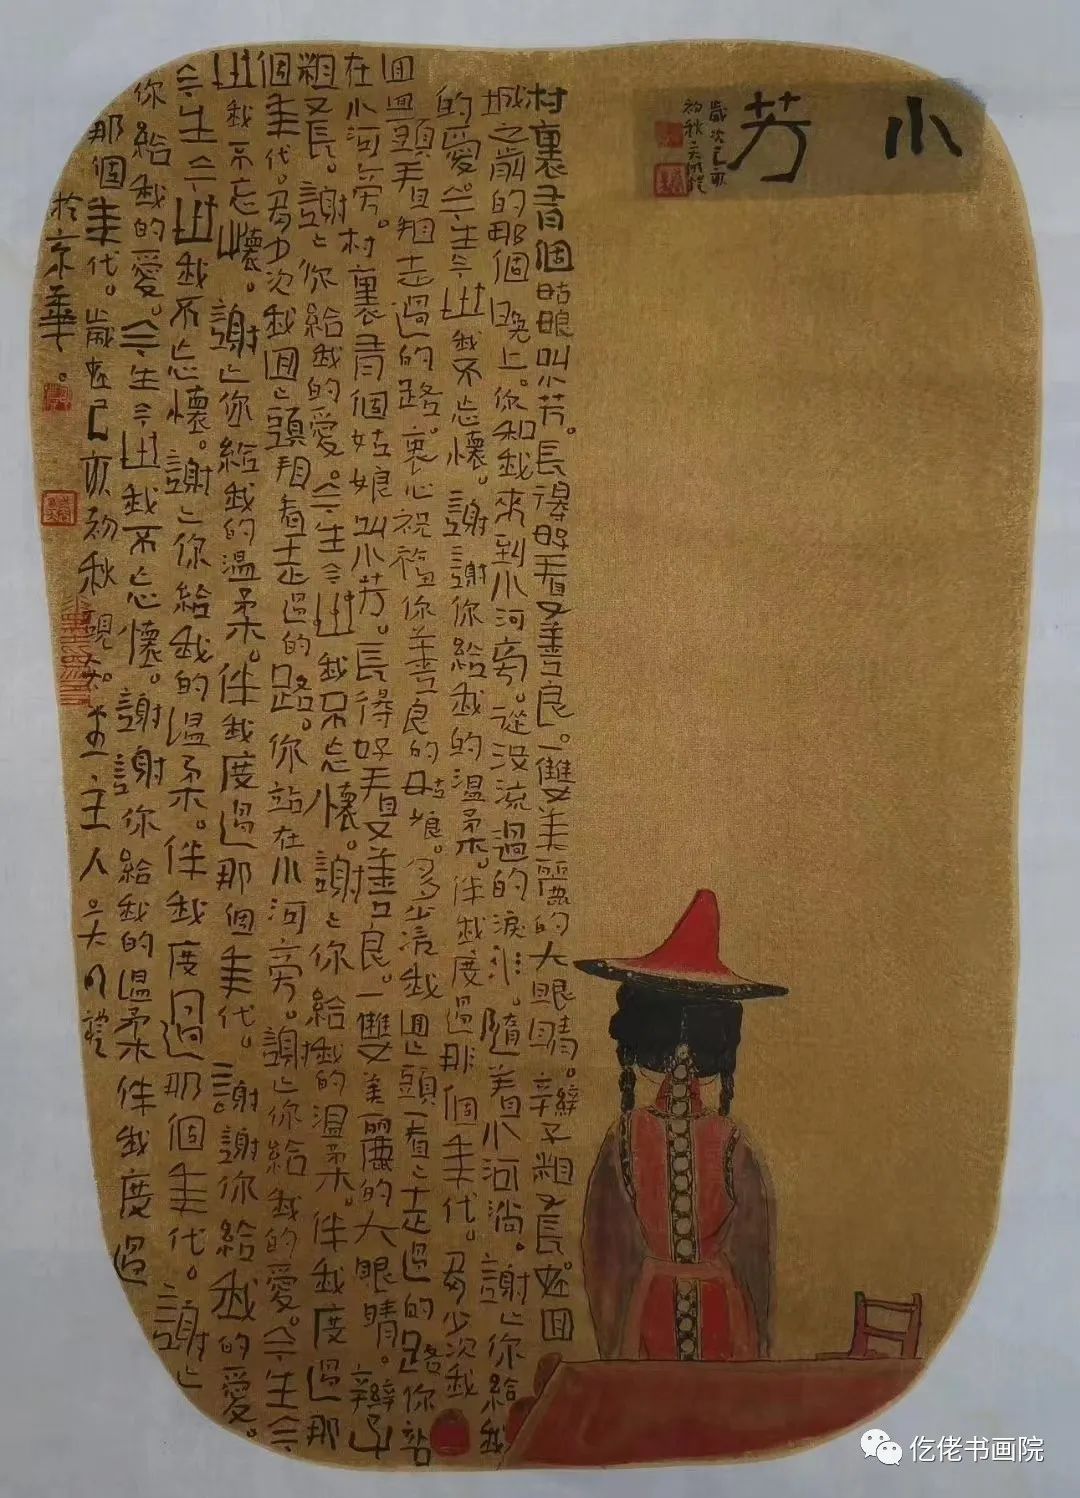 小芳
歲次己亥
初秋吴明禮
村裏有個姑娘叫小芳。長得好看又善良。一雙美麗的大眼睛。辮子粗又長。在回
城之前的那個晚上。你和我來到小河旁。從没流過的淚水。隨着小河淌。謝〻你給我
的愛。今生今世我不忘懷。謝謝你給我的温柔。伴我度過那個年代。多少次我
回回頭看翻走過的路。衷心祝福你善良的姑娘。多少次我回〻頭看〻走過的路你站
在小河旁。村裏有個姑娘叫小芳。長得好看又善良。一雙美麗的大眼睛。辮子
粗又長。謝〻你給我的愛。今生今世我不忘懷。謝〻你給我的温柔。伴我度過那
個年代。多少次我回〻頭看走過的路。你站在小河旁。謝〻你給我的愛。今生今
世我不忘懷。謝〻你給我的温柔。伴我度過那個年代。謝謝你給我的愛。
今生今世我不忘懷。謝〻你給我的温柔。伴我度過那個年代。謝〻
你給我的愛。今生今世我不忘懷。謝謝你給我的温柔伴我度過
那個年代。歲在己亥初秋硯主人吴明禮
於京華。
仡佬书画院